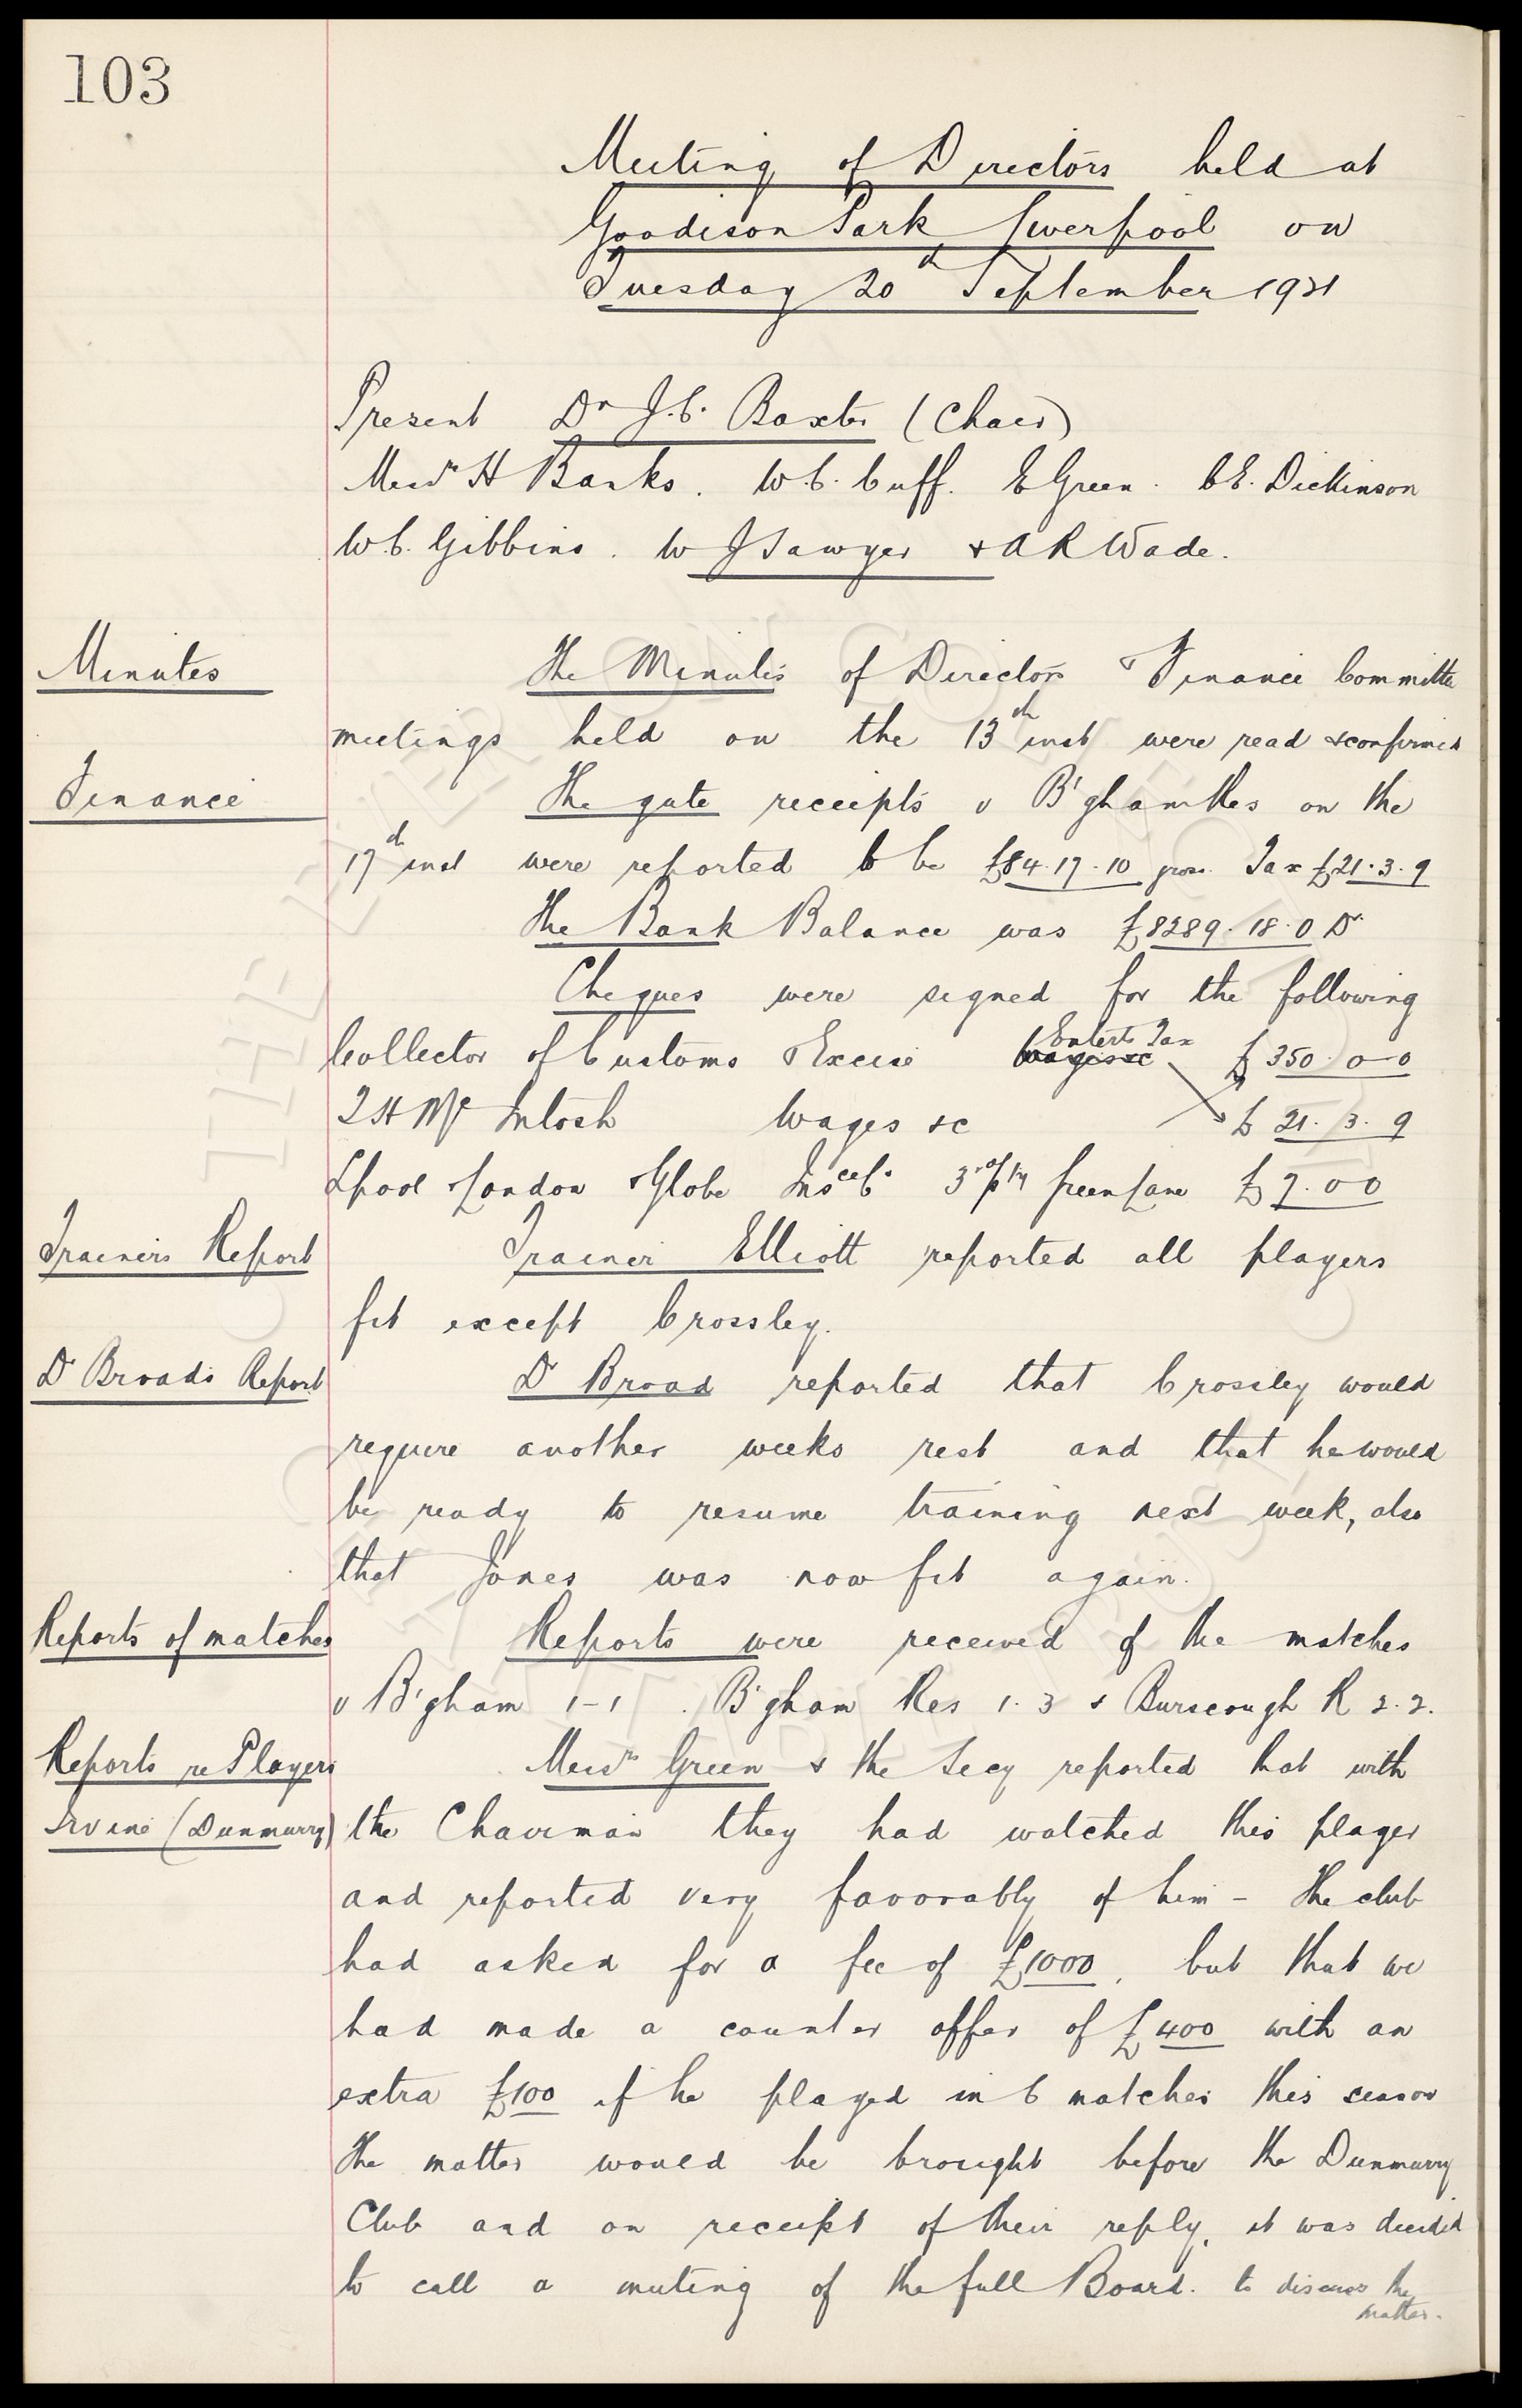 103
Meeting of Directors held at
Goodison Park Liverpool on
Tuesday 20th September 1921
Present Dr J.C. Baxter (Chair)
Messrs H Banks. W.C. Cuff. E Green. C E. Dickinson
W.C. Gibbins. W J Sawyer & A R Wade.
Minutes
The Minutes of Directors & Finance Committee
meetings held on the 13th inst were read & confirmed
Finance
The gate receipts v B'gham Res on the
17th inst were reported to be £84.17.10 gross. Tax £21.3.9
The Bank Balance was £8289.18.0 Dr
Cheques were signed for the following
Collector of Customs & Excise Wages &c Enterts Tax £350.0-0
T H McIntosh Wages &c £21.3.9
Lpool London & Globe Insce Co. 3 Green Lane £7.0 0
Trainers Report
Trainer Elliott reported all players
fit except Crossley.
Dr Broads Report
Dr Broad reported that Crossley would
require another weeks rest and that he would
be ready to resume training next week, also
that Jones was now fit again.
Reports of matches
Reports were received of the matches
v B'gham 1-1. B'gham Res 1.3 & Burscough R 2.2.
Reports re Players
Messrs Green & the Secy reported that with
Irvine (Dunmurry)
the Chairman they had watched this player
and reported very favorably of him - The club
had asked for a fee of £1000, but that we
had made a counter offer of £400 with an
extra £100 if he played in 6 matches this season
The matter would be brought before the Dunmurry
Club and on receipt of their reply, it was decided
to call a meeting of the full Board. to discuss the
matter.